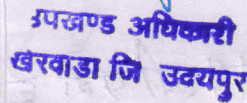 उपखण्ड अधिकारी
खेरवाडा जि उदयपुर